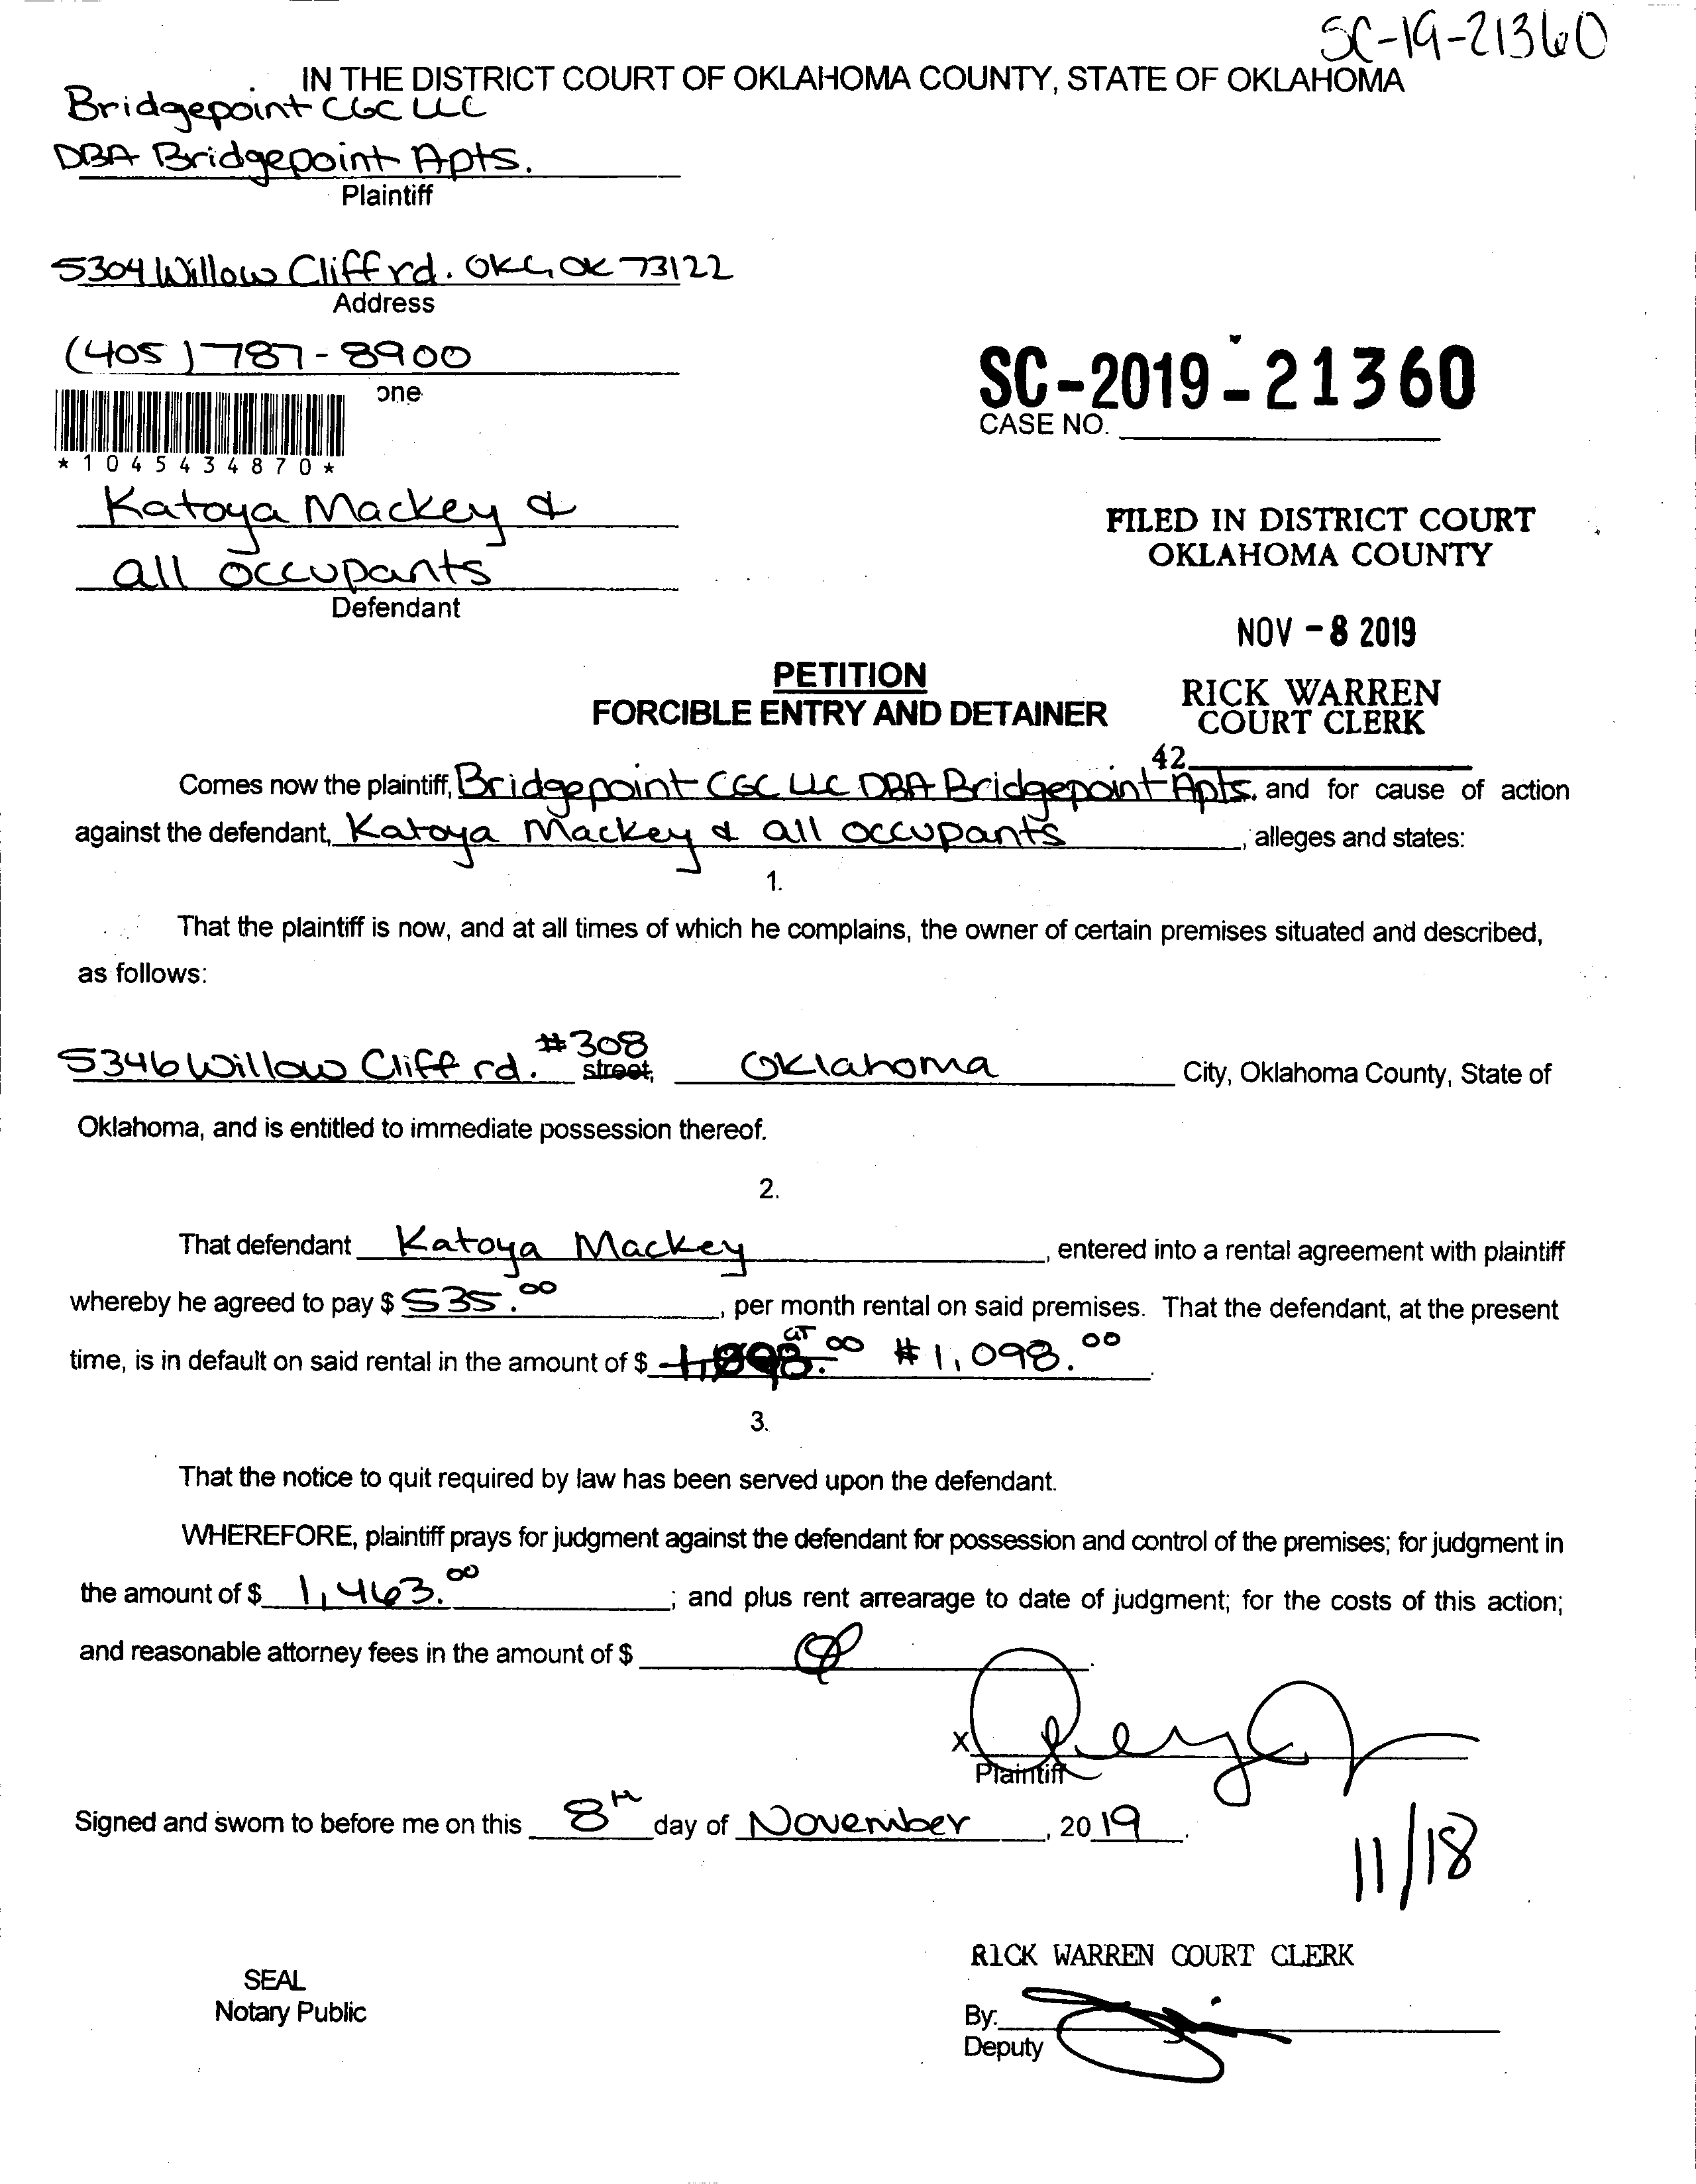 SC-19-21360
IN THE DISTRICT COURT OF OKLAHOMA COUNTY, STATE OF OKLAHOMA
Bridgepoint CGC LLC
DBA Bridgepoint Apts.
Plaintiff
5304 Willow Cliff rd. OKC, OK 73122
Address
(405) 787-8900
one
SC-2019-21360
CASE NO.
*1045434870*
Katoya Mackey &
all occupants
Defendant
FILED IN DISTRICT COURT
OKLAHOMA COUNTY
NOV - 8 2019
PETITION
FORCIBLE ENTRY AND DETAINER
RICK WARREN
COURT CLERK
42
Comes now the plaintiff, Bridgepoint CGC LLC DBA Bridgepoint Apts. and for cause of action
against the defendant, Katoya Mackey & all occupants, alleges and states:
1.
That the plaintiff is now, and at all times of which he complains, the owner of certain premises situated and described,
as follows:
5346 Willow Cliff rd. #308 street, Oklahoma City, Oklahoma County, State of
Oklahoma, and is entitled to immediate possession thereof.
2.
That defendant Katoya Mackey, entered into a rental agreement with plaintiff
whereby he agreed to pay $ 535.00, per month rental on said premises. That the defendant, at the present
time, is in default on said rental in the amount of $ #1,098.00.
3.
That the notice to quit required by law has been served upon the defendant.
WHEREFORE, plaintiff prays for judgment against the defendant for possession and control of the premises; for judgment in
the amount of $ 1,463.00; and plus rent arrearage to date of judgment; for the costs of this action;
and reasonable attorney fees in the amount of $
X
Plaintiff
Signed and sworn to before me on this 8th day of November, 2019.
11/18
RICK WARREN COURT CLERK
SEAL
Notary Public
By:
Deputy